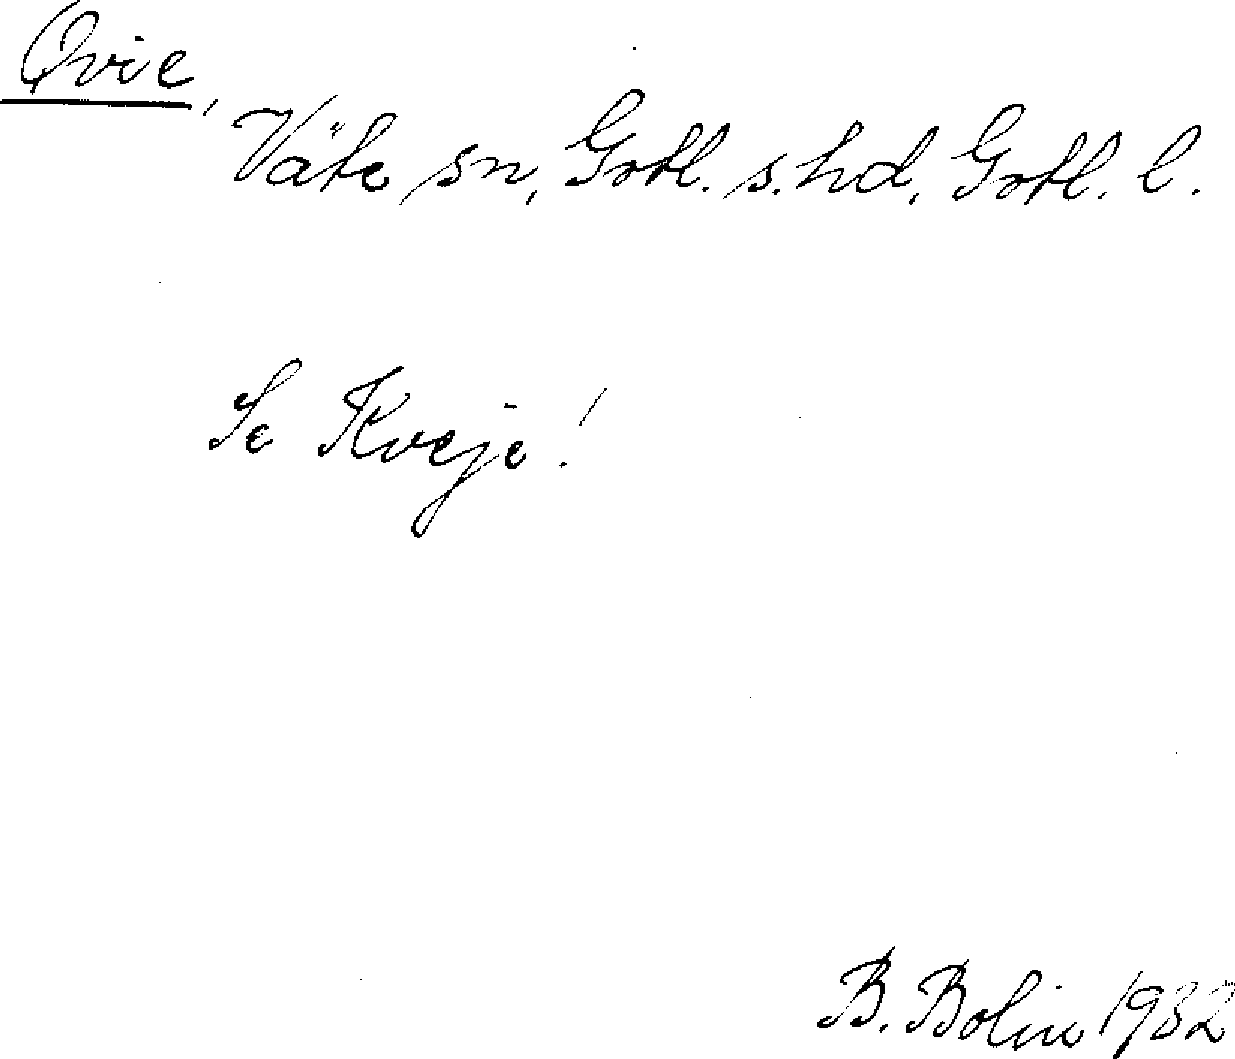 Qvie,
Väte sn, Gotl. s. hd, Gotl. l.
Se Kveje!
B. Bolin 1932